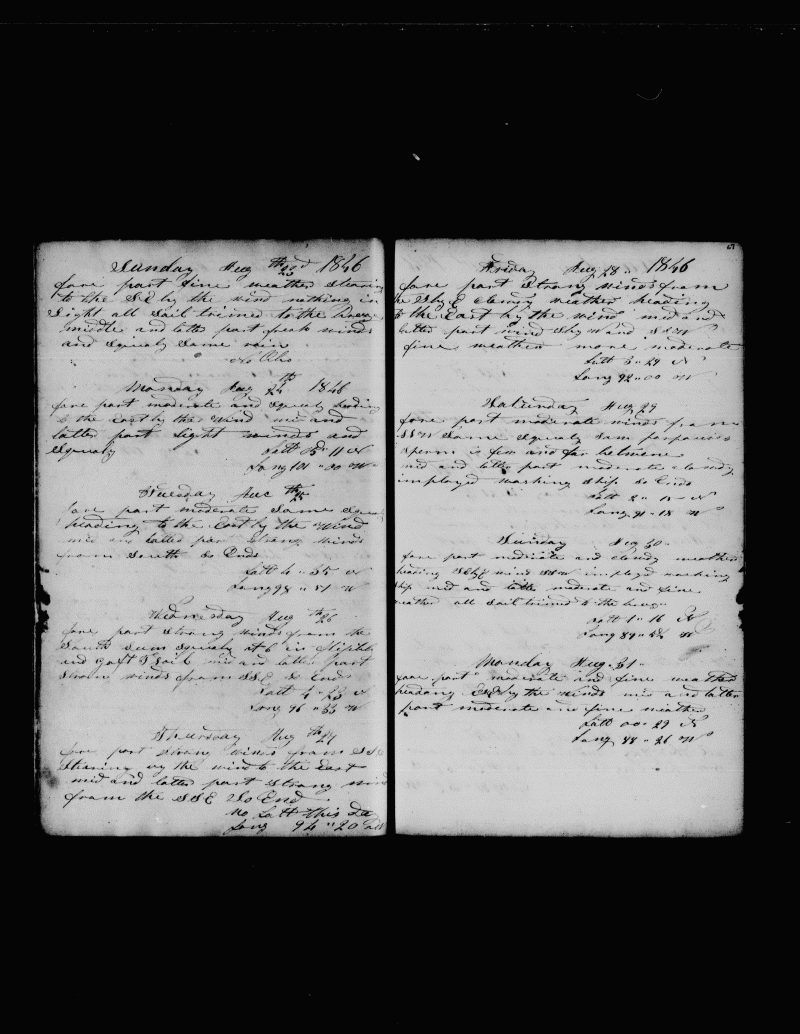 Sunday Aug 23rd 1846
fore part fine weather Stearing
to the SE by the wind nothing in
Sight all Sail trimed to the
middle and latter part fresh winds
and Squaly Some rain
No Obs
Monday Aug 24th 1846
fore part moderate and Squaly heading
to the East by the Wind mid and
latter part light winds and
Squaly Latt 5 " 11 N
Long 101 " 00 W
Tuesday Aug 25th
fore part moderate Some Squaly
heading to the East by the Wind
mid and latter part Strong Winds
from South So Ends
Latt 4 " 55 N
Long 98 " 51 W
Wednesday Aug 26th
fore part Strong winds from the
South Sum Squaly at 6 in
and gaft Sail mid and latter part
Strong winds from SSE So Ends
Latt 4 " 23 N
Long 96 " 53 W
Thursday Aug 27th
fore part Strong winds from SSE
Stearing by the wind to the East
mid and latter part Strong wind
from the SSE So End
No Latt this Da
Long 94 " 20 W
67
Friday Aug 28 " 1846
fore part Strong winds from
the SbyE cloudy weather heading
to the East by the wind mid and
latter part wind Sby W and SSW
fine weather more moderate
Latt 3 " 29 N
Long 92 " 00 W
Saturday Aug 29
fore part moderate winds from
SSW Some Squaly Sum porpoises
Sperm is few and far between
mid and latter part moderate cloudy
imployd washing Ship So Ends
Latt 2 " 15 N
Long 91 " 18 W
Sunday Aug 30
fore part moderate and cloudy weather
heading wind SSW imployd washing
Ship mid and latter moderate and fine
weather all Sail trimed to the
Latt 1 " 16 N
Long 89 " 56 W
Monday Aug 31
fore part moderate and fine weather
heading by the winds mid and latter
part moderate and fine weather
Latt 00 " 29 N
Long 88 " 26 W